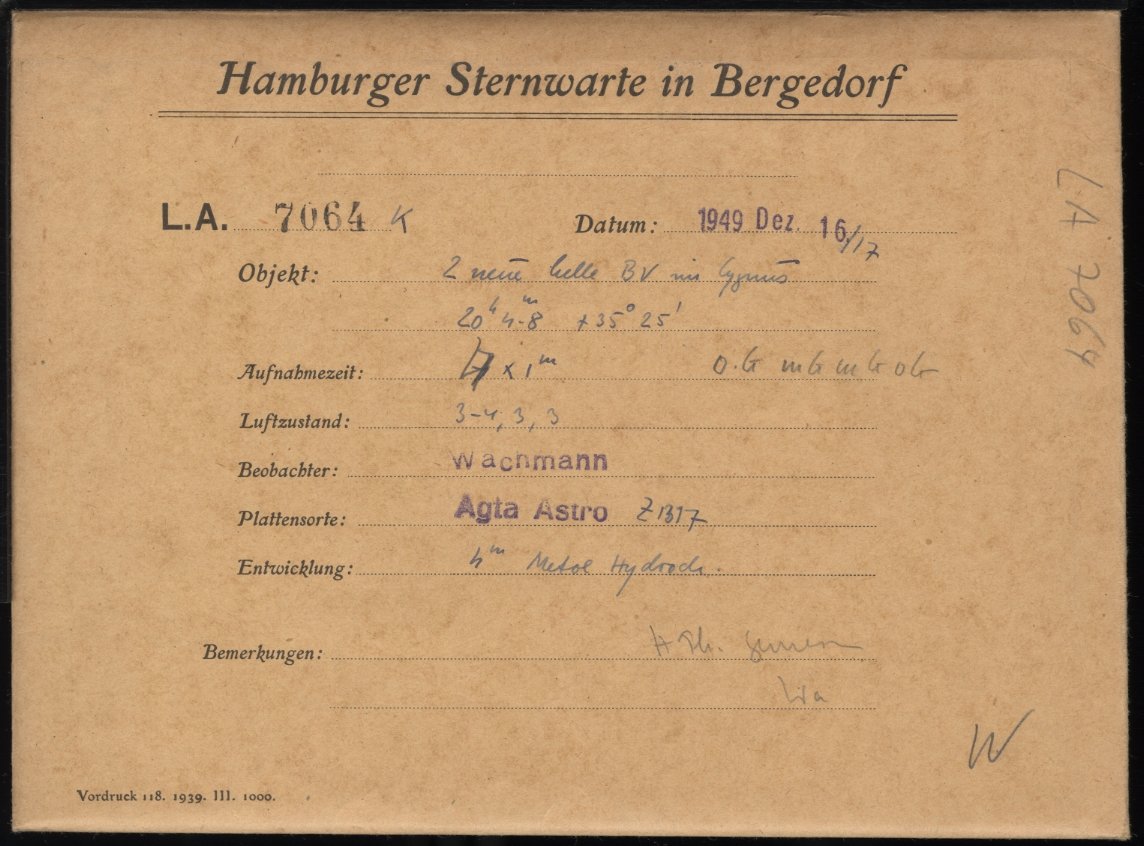 Hamburger Sternwarte in Bergedorf
L.A. 7064 K Datum: 1949 Dez. 16/17
Objekt: 2 neue helle BV im Cygnus
20h 4m.8 +35° 25'
Aufnahmezeit: x 1m
Luftzustand: 3-4, 3, 3
Beobachter: Wachmann
Plattensorte: Agfa Astro Z 1317
Entwicklung: 4m Metol Hydroch.
Bemerkungen:
Wa
W
Vordruck 118. 1939. III. 1000.
LA 7064